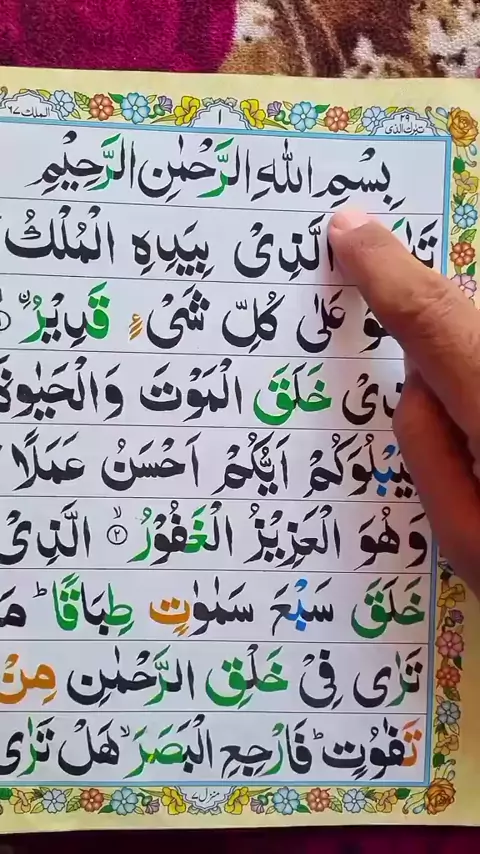 الملك ٦٧
١
تبٰرك الذی ٢٩
بِسْمِ اللهِ الرَّحْمٰنِ الرَّحِيْمِ
الَّذِیْ بِيَدِهِ الْمُلْكُ
عَلٰی كُلِّ شَیْءٍ قَدِيْرُ
خَلَقَ الْمَوْتَ وَالْحَيٰوةَ
لِيَبْلُوَكُمْ اَيُّكُمْ اَحْسَنُ عَمَلًا
وَهُوَ الْعَزِيْزُ الْغَفُوْرُ ٢ الَّذِیْ
خَلَقَ سَبْعَ سَمٰوٰتٍ طِبَاقًا ط
تَرٰی فِیْ خَلْقِ الرَّحْمٰنِ مِنْ
تَفٰوُتٍ ط فَارْجِعِ الْبَصَرَ هَلْ تَرٰی
منزل ٧